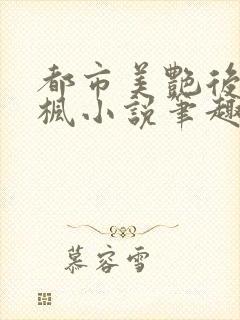 都市美艷後
楓小說筆趣
慕容雪